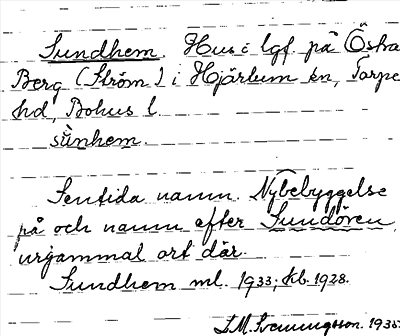 Sundhem. Hus i lgf. på Östra
Berg (Ström) i Hjärtum sn, Torpe
hd, Bohus l.
sùnhem.
Sentida namn. Nybebyggelse
på och namn efter Sundören,
urgammal ort där.
Sundhem ml. 1933; Kb. 1928.
S.M. Svenningsson. 1935